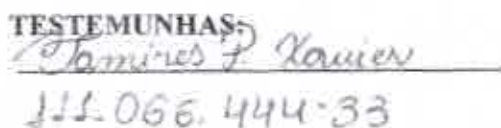 TESTEMUNHAS:
Tamires P. Xavier
111.066.444-33